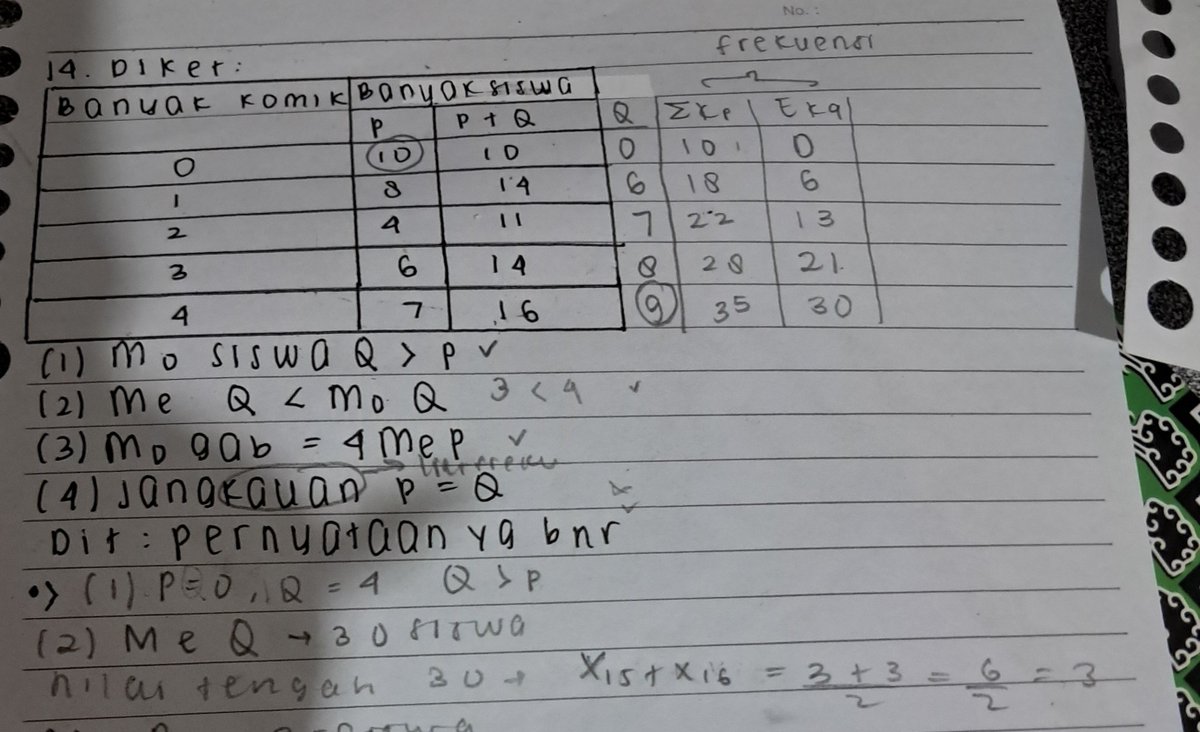 No. :
frekuensi
14. Diket:
Banyak komik Banyak siswa
P P + Q Q Σkp Σkq
0 10 10 0 10 0
1 8 14 6 18 6
2 4 11 7 22 13
3 6 14 8 28 21
4 7 16 9 35 30
(1) Mo siswa Q > P ✓
(2) Me Q < Mo Q 3 < 4 ✓
(3) Mo gab = 4 Me P ✓
(4) Jangkauan P = Q
Dit : pernyataan yg bnr
•> (1) P = 0, Q = 4 Q > P
(2) Me Q → 30 siswa
nilai tengah 30 → X15 + X16 = 3 + 3 / 2 = 6 / 2 = 3